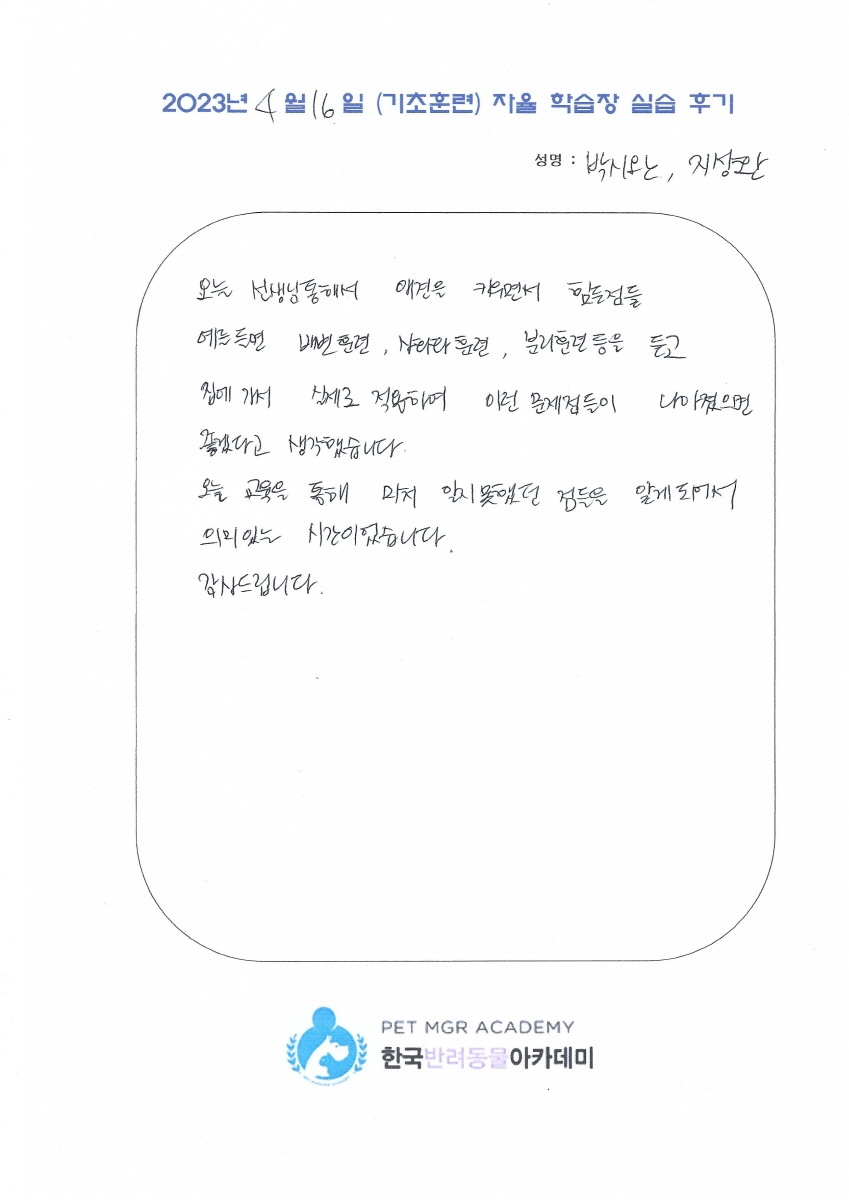 2023년 4월 16일 (기초훈련) 자율 학습장 실습 후기
성명 : 박시온, 지성완
오늘 선생님통해서 애견을 키우면서 힘든점들
예를들면 배변훈련, 삼하라훈련, 분리훈련등을 듣고
집에 가서 실제로 적용하여 이런 문제점들이 나아졌으면
좋겠다고 생각했습니다.
오늘 교육을 통해 미처 알지못했던 점들을 알게되어서
의미있는 시간이었습니다.
감사드립니다.
PET MGR ACADEMY
한국반려동물아카데미